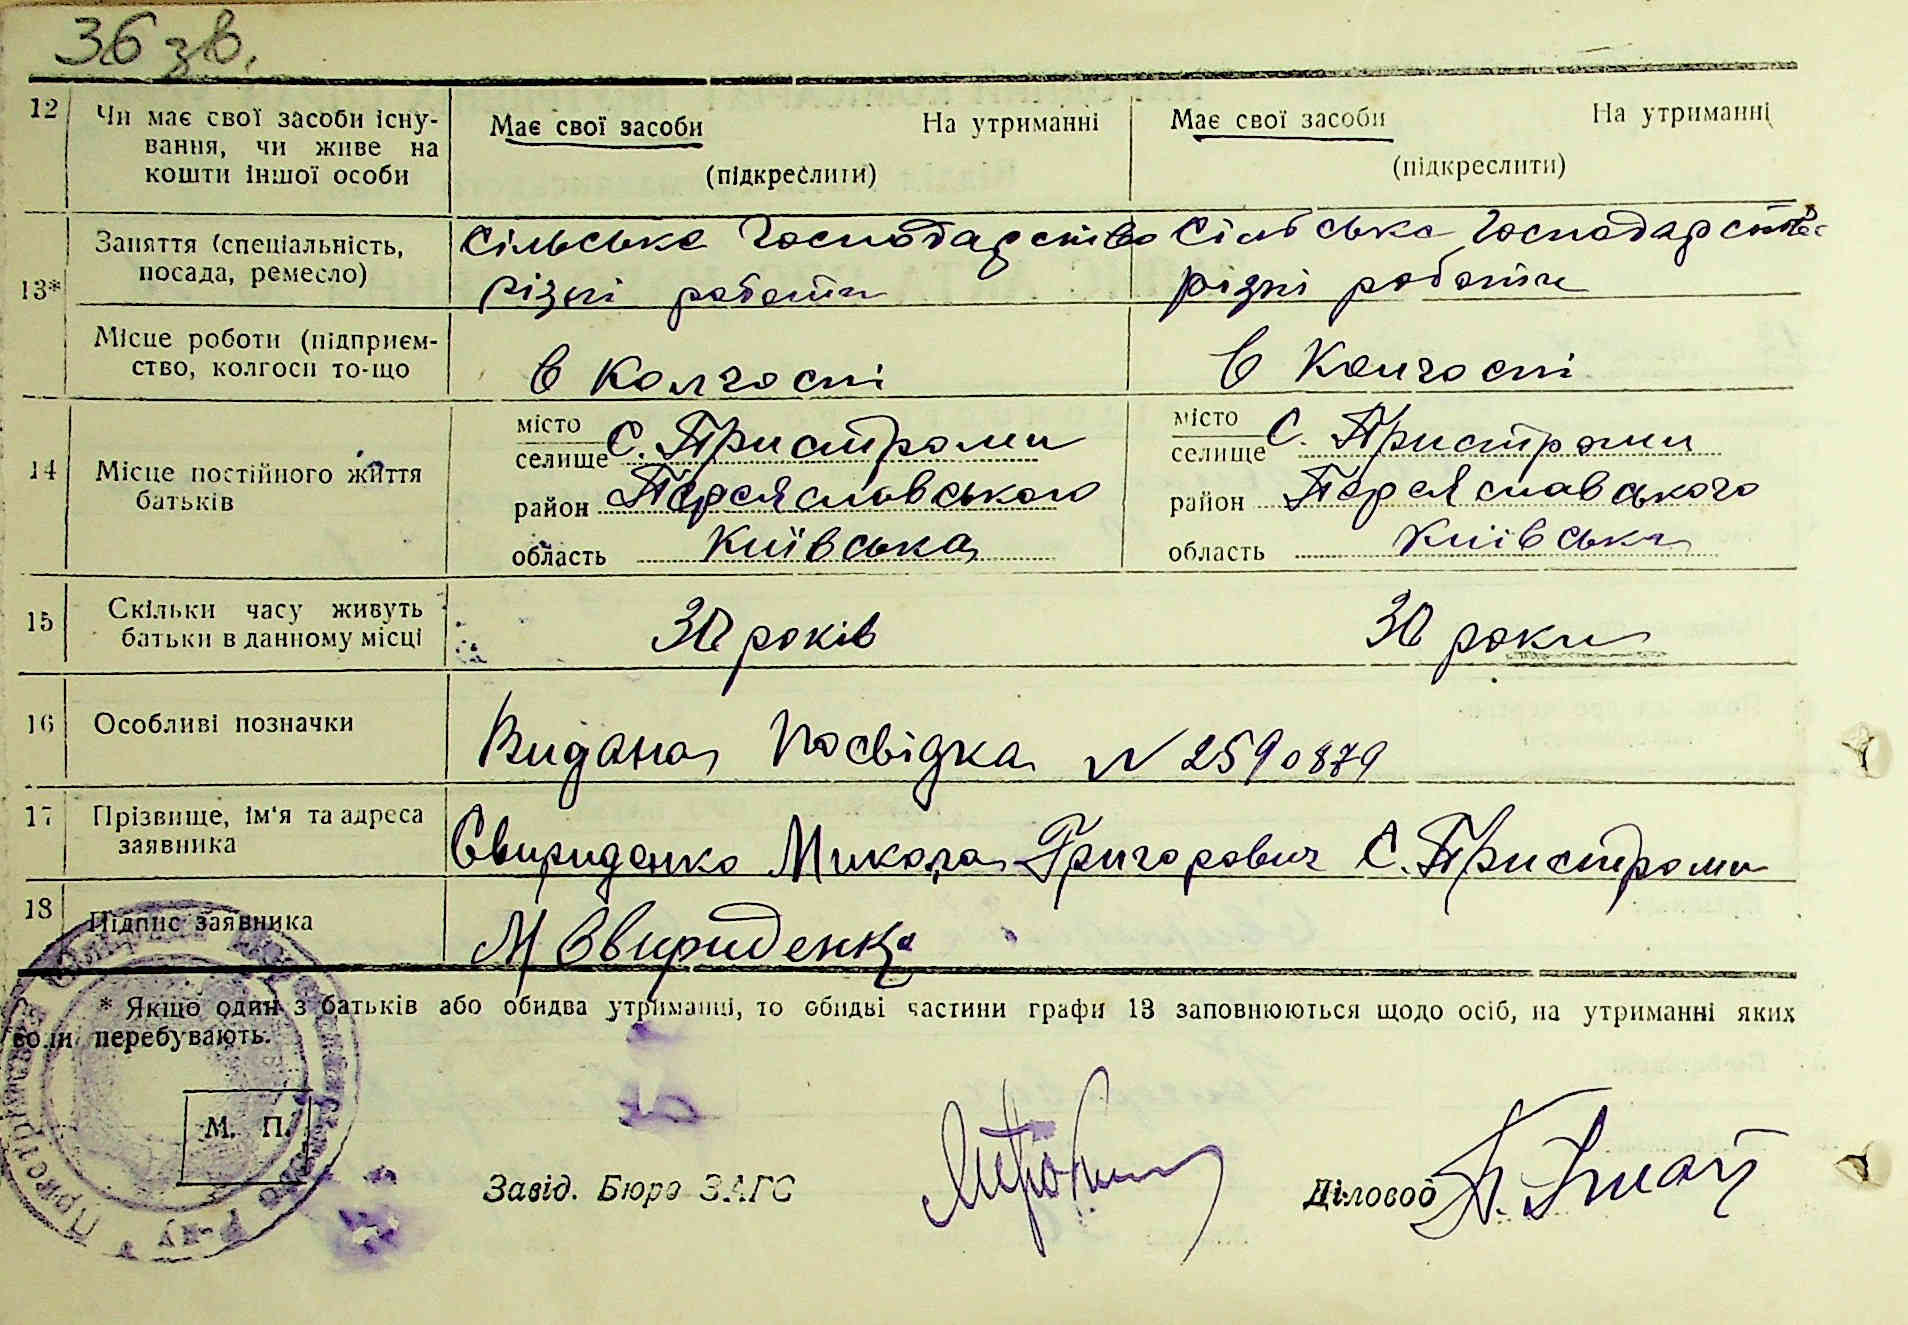 36 зв.
12 Чи має свої засоби існу- Має свої засоби На утриманні Має свої засоби На утриманні
вання, чи живе на
кошти іншої особи (підкреслити) (підкреслити)
13* Заняття (спеціальність, Сільське господарство Сільське господарство
посада, ремесло) різні роботи різні роботи
Місце роботи (підприєм- в колгоспі в колгоспі
ство, колгосп то-що
14 Місце постійного життя
батьків
місто
селище С. Пристроми
район Переяславського
область Київська
місто
селище С. Пристроми
район Переяславського
область Київська
15 Скільки часу живуть
батьки в данному місці 30 років 30 роки
16 Особливі позначки Видана посвідка N 2590879
17 Прізвище, ім'я та адреса
заявника Свириденко Микола Григорович С. Пристроми
18 Підпис заявника М Свириденко
* Якщо один з батьків або обидва утриманці, то обидві частини графи 13 заповнюються щодо осіб, на утриманні яких
вони перебувають.
М. П.
Завід. Бюро ЗАГС Діловод